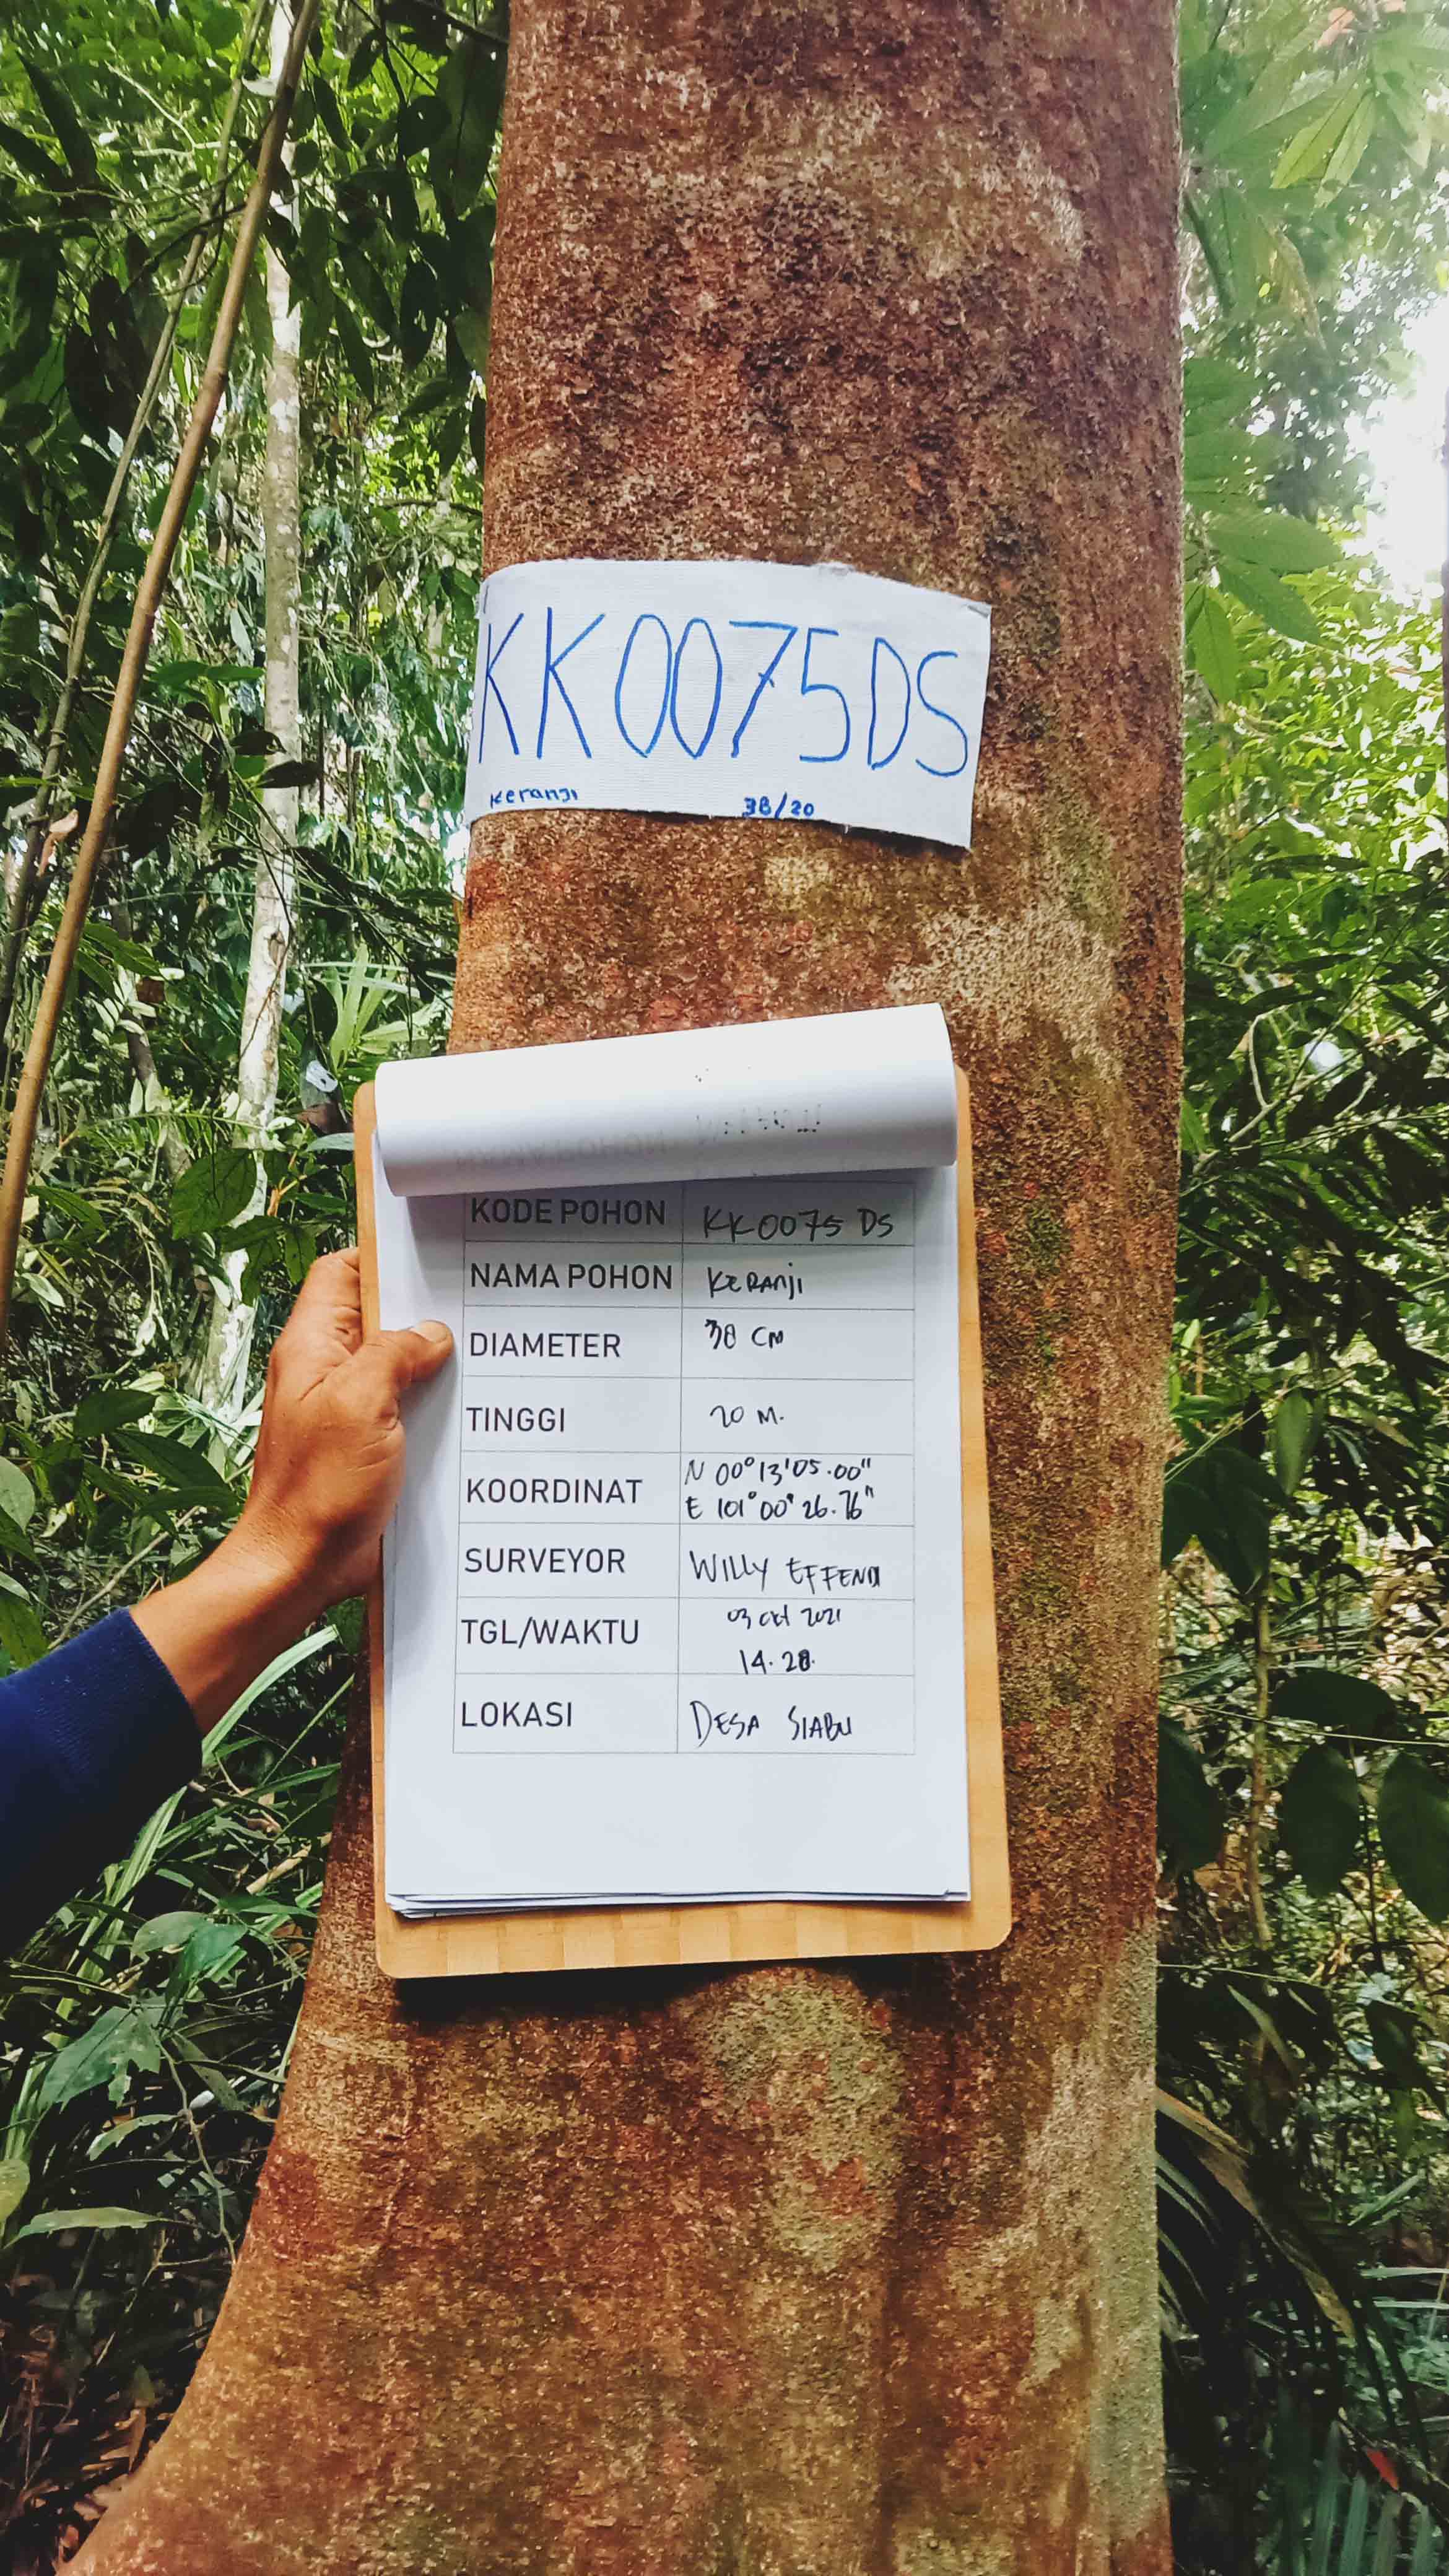 KK0075DS
Keranji 38/20
KODE POHON KK0075 DS
NAMA POHON KERANJI
DIAMETER 38 CM
TINGGI 20 M.
KOORDINAT N 00°13'05.00"
E 101°00'26.76"
SURVEYOR WILLY EFFENDI
TGL/WAKTU 03 Okt 2021
14.28.
LOKASI DESA SIABU